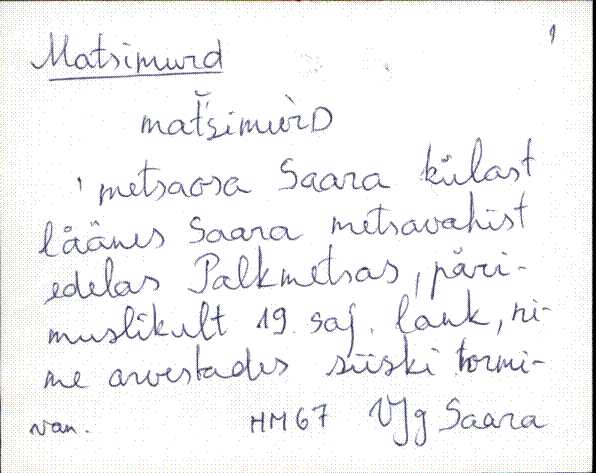 1
Matsimurd
mat̆'simùrD
' metsaosa Saara külast
läänes Saara metsavahist
edelas Palkmetsas, päri-
muslikult 19. saj. lank, ni-
me arvestades siiski tormi-
van. HM67 VJg Saara